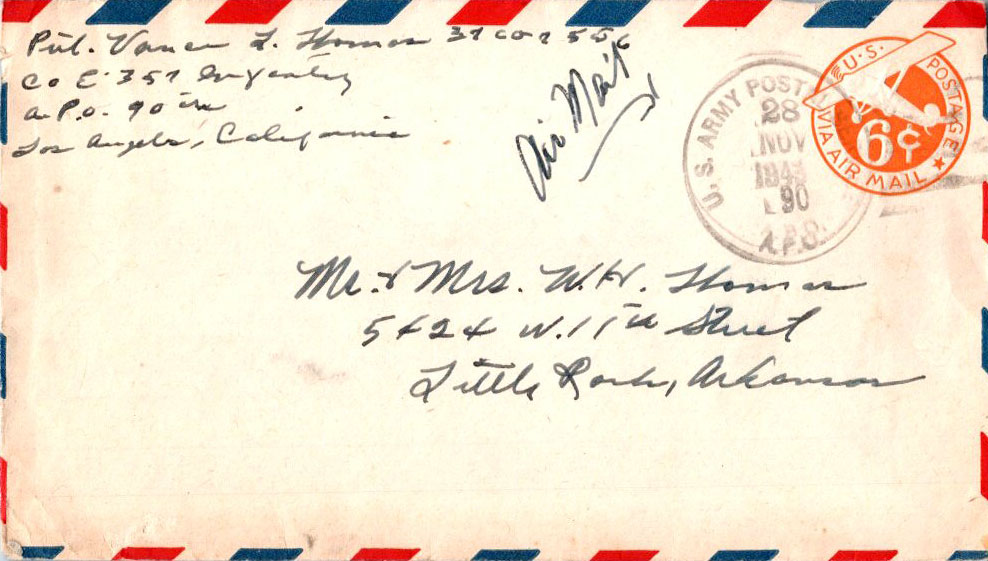 Pvt. Vance L. Thomas
Co E. 357 Infantry
A.P.O. 90
Los Angeles, California
Air Mail
U.S. ARMY POSTAL
28
NOV
194
90
A.P.O.
U.S. POSTAGE
6¢
VIA AIR MAIL
Mr. & Mrs. W. H. Thomas
5424 W. 11th Street
Little Rock, Arkansas